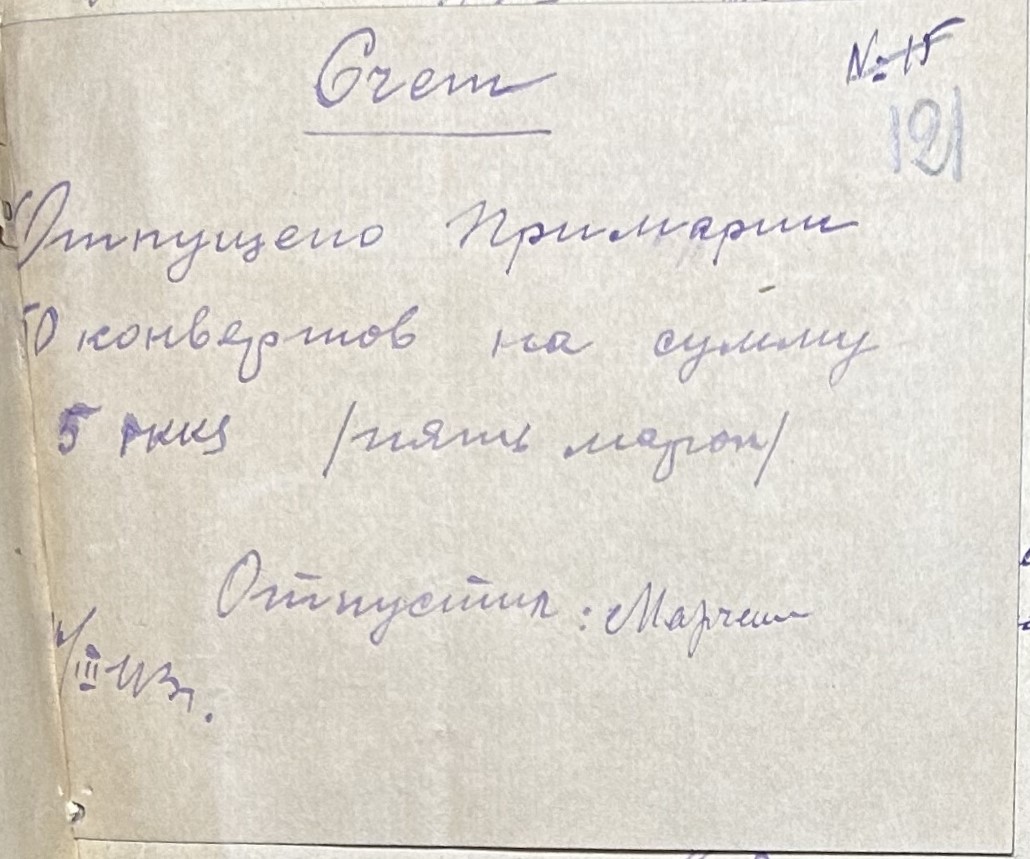 Счет
№ 15
121
Отпущено Примарии
50 конвертов на сумму
5 RKKS /пять марок/
Отпустил:
/III 43 г.